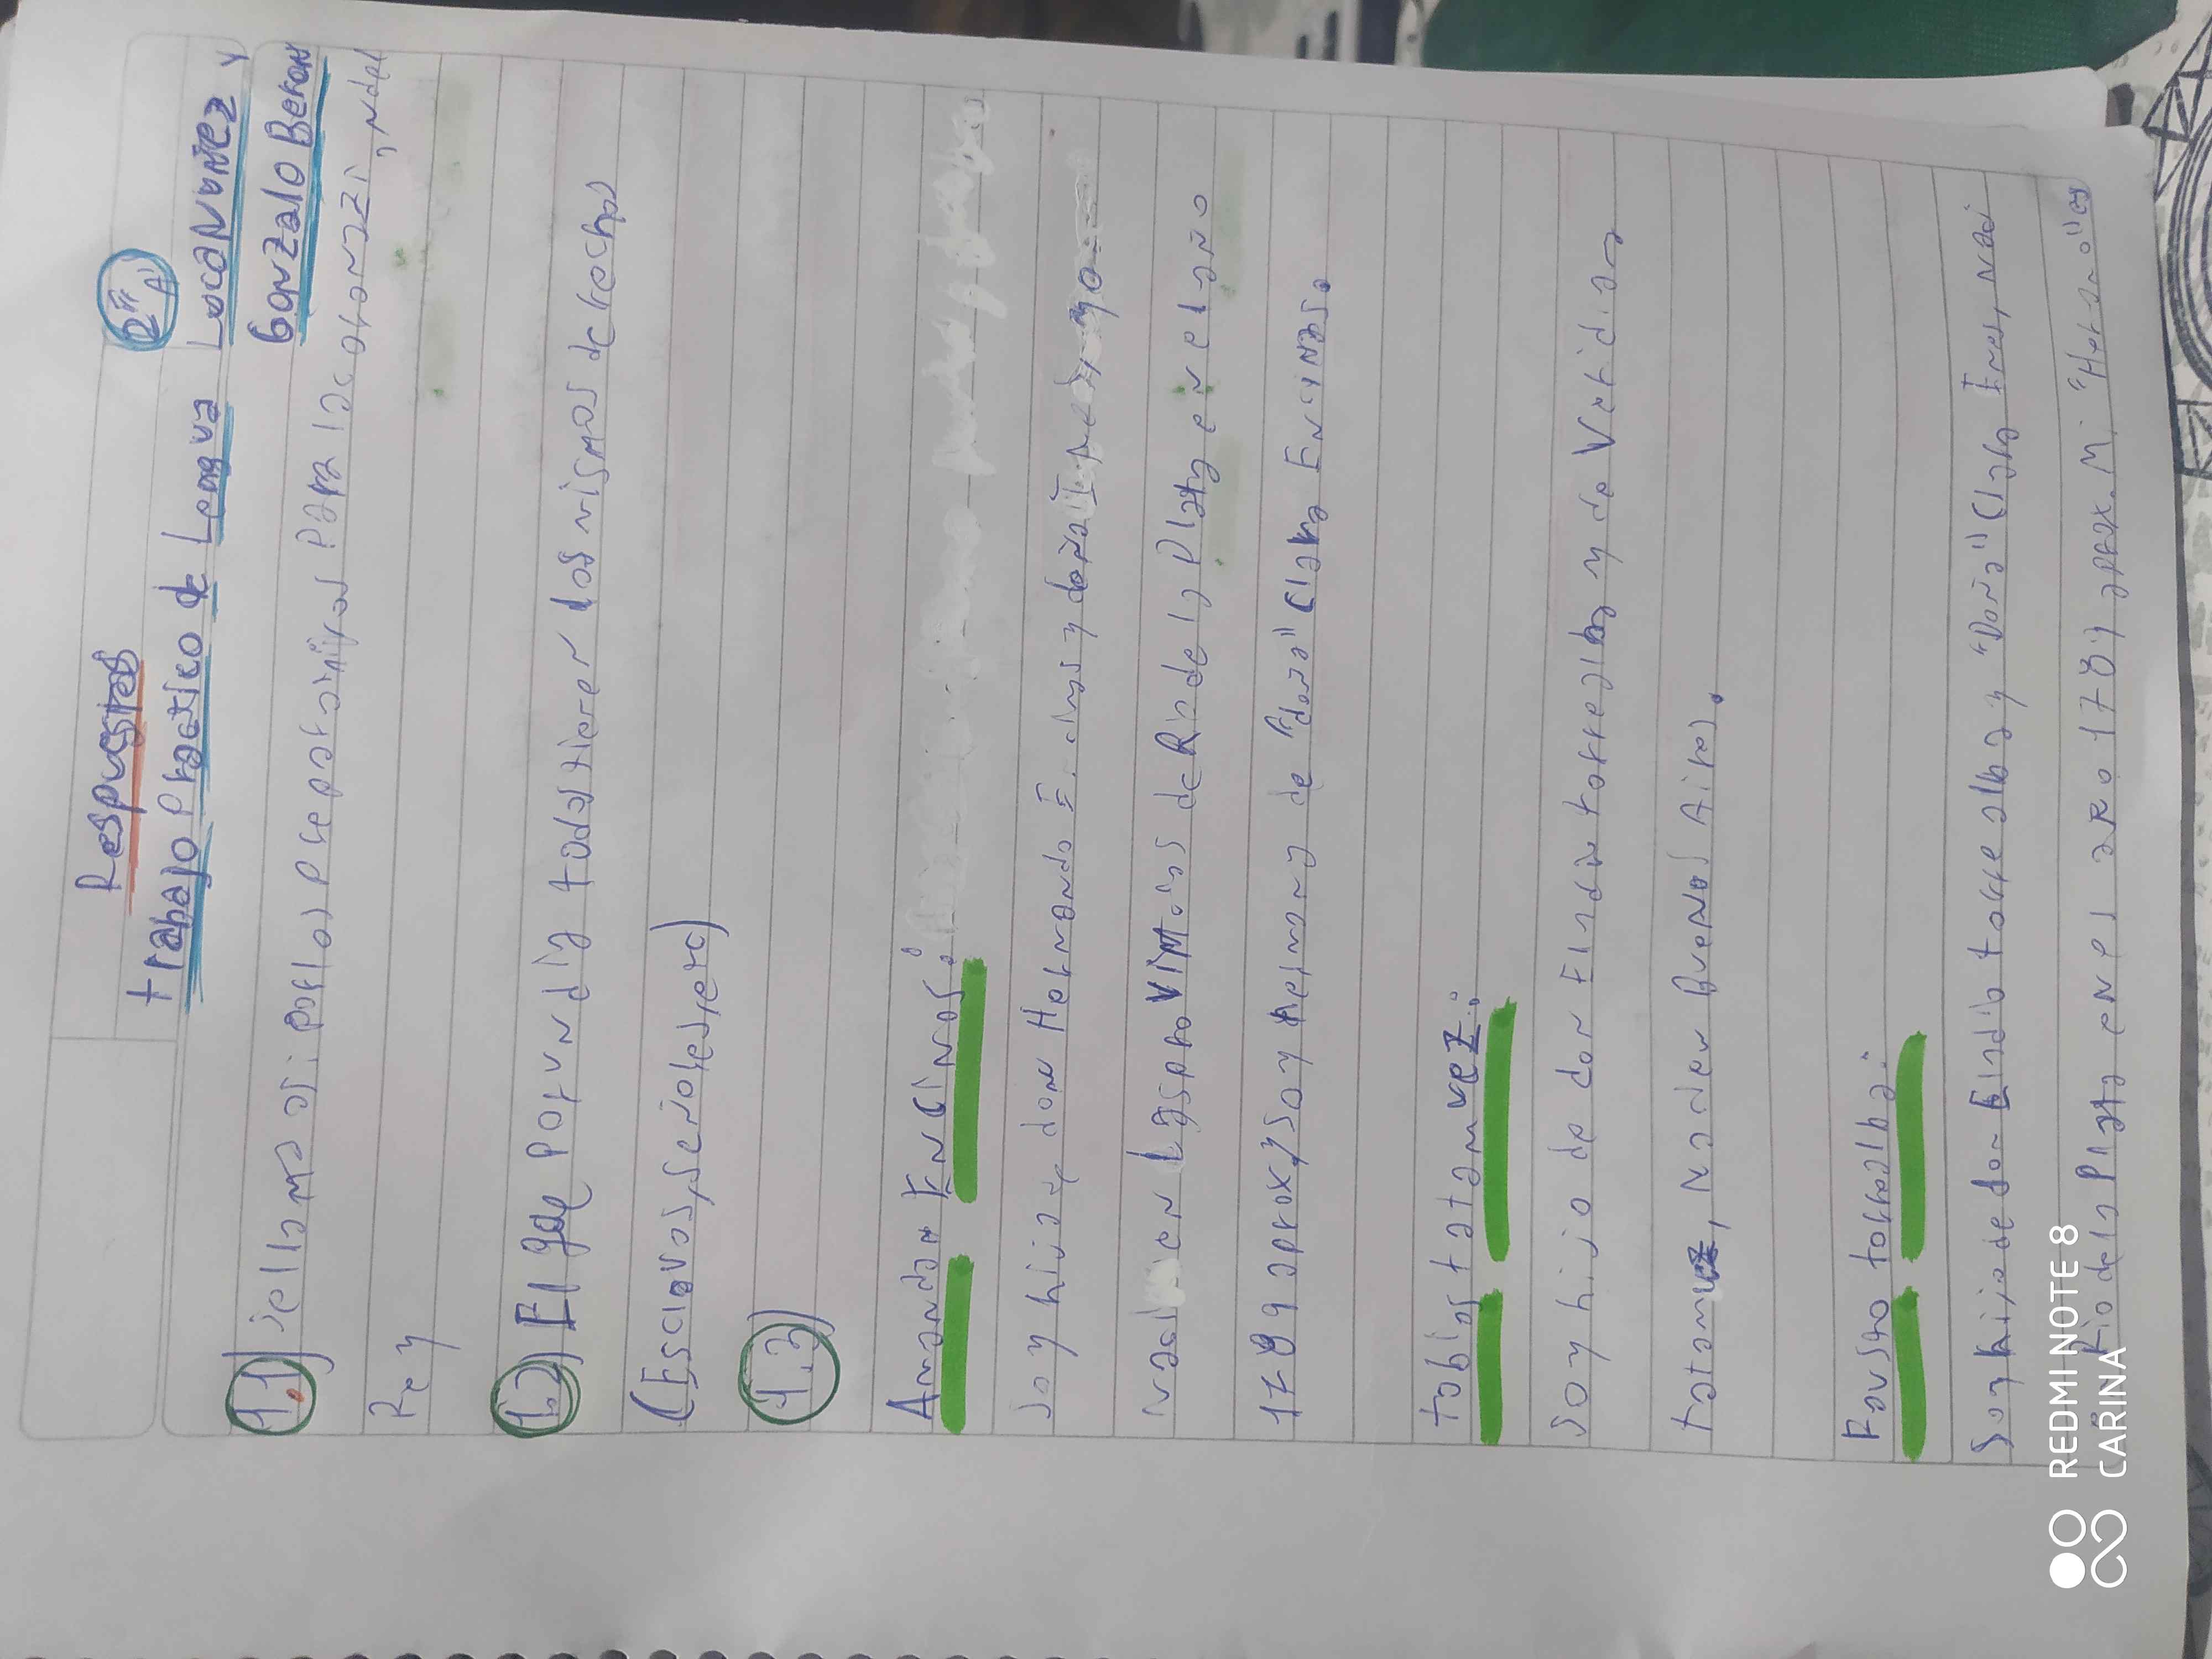 Respuestas
trabajo Practico de Lengua
2° "A"
Loca Nuñez y
Gonzalo Beron
1.1) se llama asi por los preparativos para la coronazion del
Rey
1.2) El que por un dia todos tienen los mismos derechos
(Esclavos, señores, etc)
1.3)
Amanda Encinos:
Soy hija de don Hernando E. y doña Ines y yo
Naci en las Provincias de Rio de la Plata en el año
1789 aprox, y soy hermana de "doña" Clara Encinos.
tobias tatamuez:
Soy hijo de don Eliseo torrealba y de Veridiana
tatamuez, Naci en Buenos Aires.
Fausto torrealba:
Soy hijo de don Eliseo torrealba y "Doña" Clara Ines, naci
Rio de la Plata en el año 1787 aprox. Mi "Hermano" es
REDMI NOTE 8
CARINA